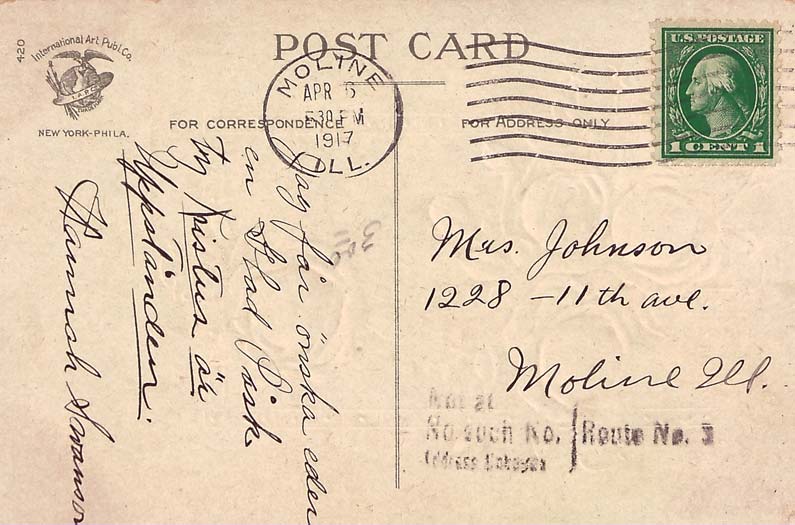 420
International Art Publ. Co.
I.A.P.C.
NEW YORK-PHILA.
POST CARD
FOR CORRESPONDENCE
FOR ADDRESS ONLY
MOLINE
APR 6
30 PM
1917
ILL.
U.S. POSTAGE
1 CENT 1
Jag får önska eder
en Glad Påsk
Ty Kristus är
Uppstånden.
Hannah Swanson
Mrs. Johnson
1228 - 11th ave.
Moline Ill.
Not at
No such No.
Address
Route No.